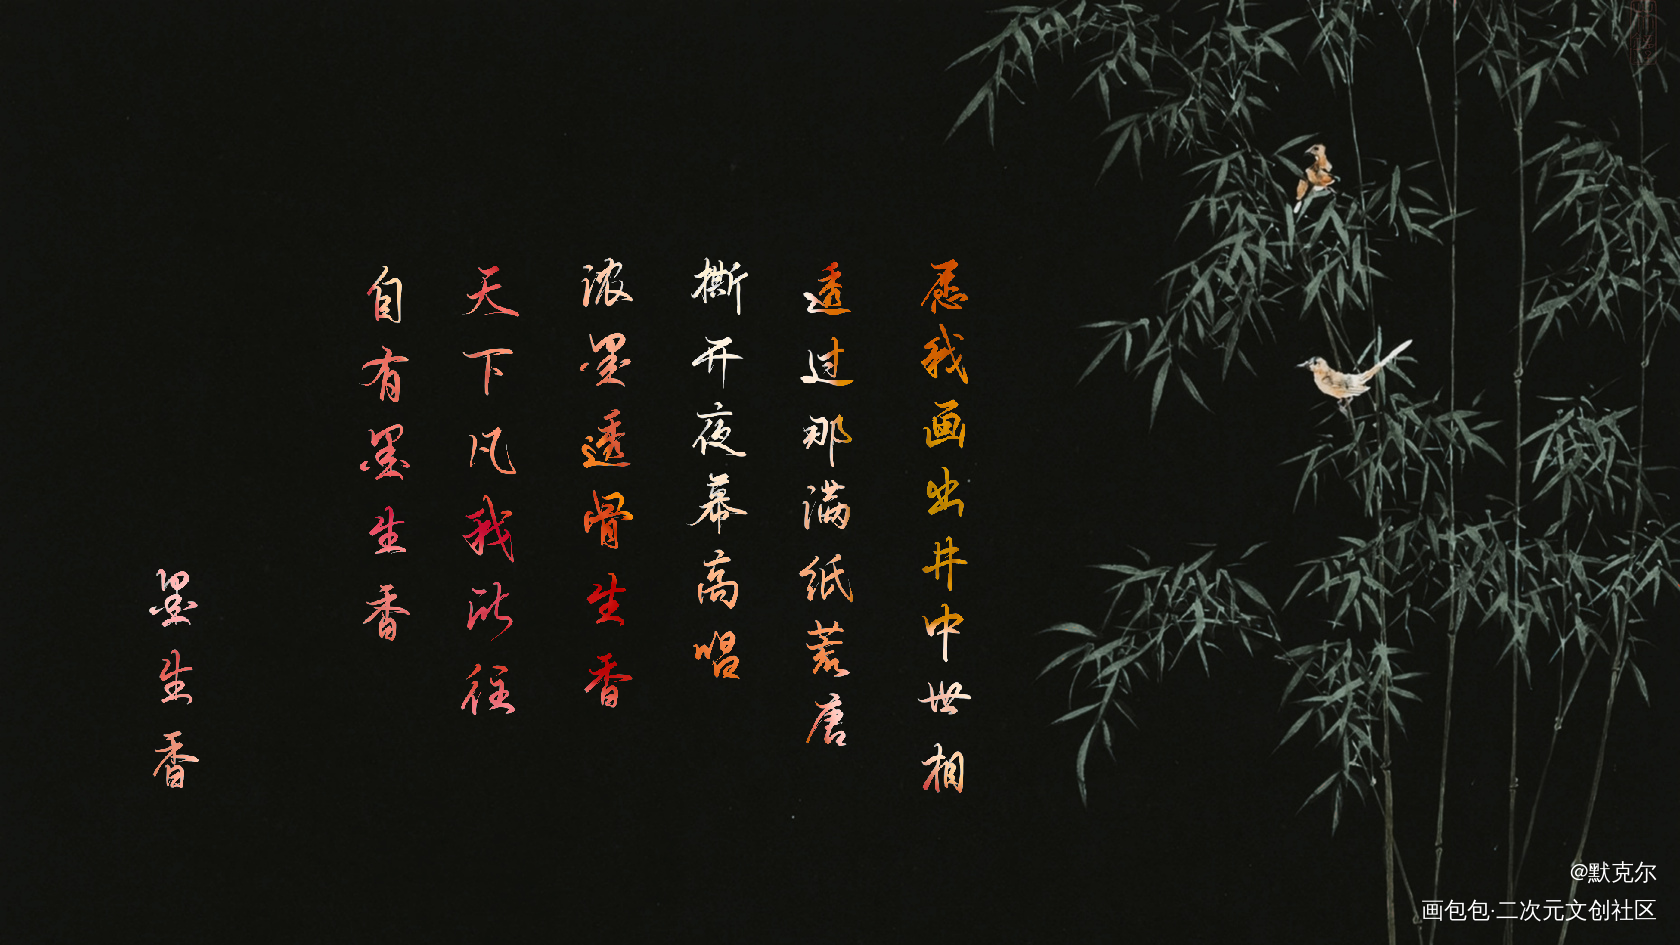 愿我画出井中世相
透过那满纸荒唐
撕开夜幕高唱
浓墨透骨生香
天下凡我所往
自有墨生香
墨生香
@默克尔
画包包·二次元文创社区